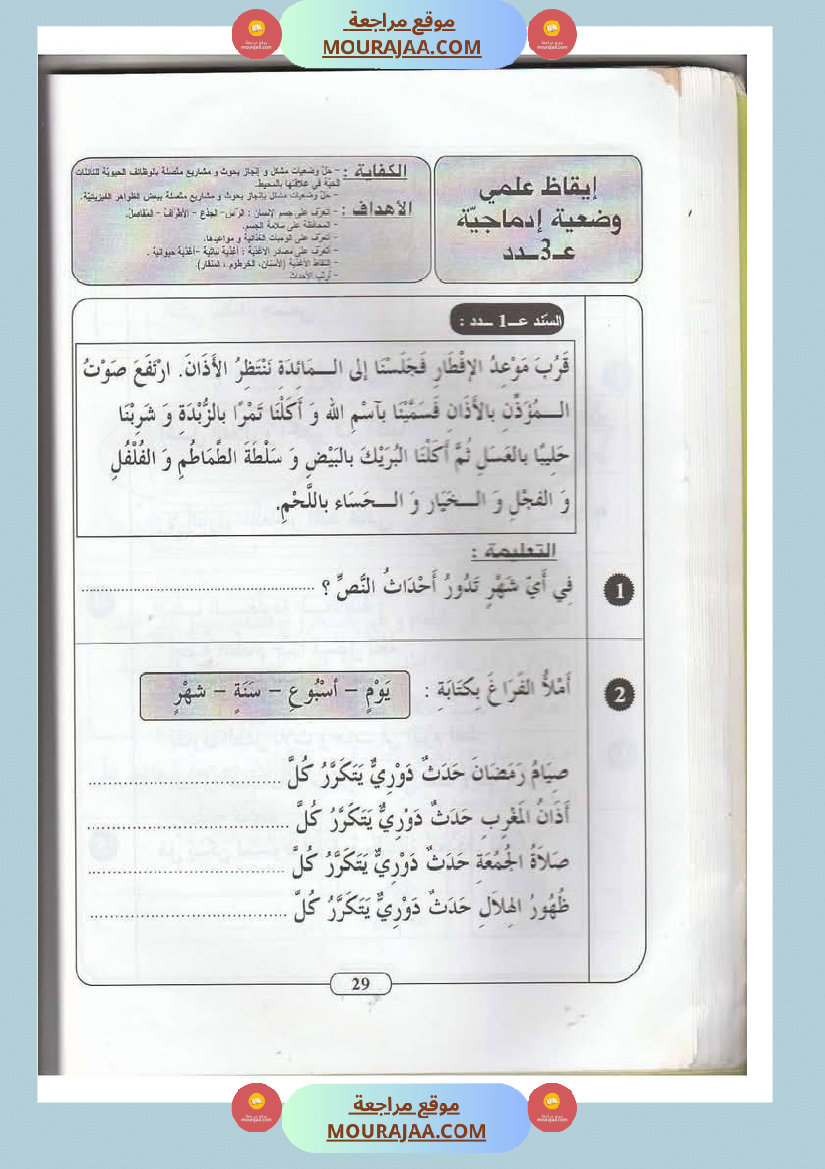 موقع مراجعة
MOURAJAA.COM
إيقاظ علمي
وضعية إدماجيّة
عـ3ـدد
الكفاية : - حلّ وضعيات مشكل و إنجاز بحوث و مشاريع متّصلة بالوظائف الحيويّة للكائنات
الحيّة في علاقتها بالمحيط.
- حلّ وضعيات مشكل بإنجاز بحوث و مشاريع متّصلة ببعض الظواهر الفيزيائيّة.
الأهداف : - تعرّف على جسم الإنسان : الرّأس- الجذع - الأطراف - المفاصل.
- المحافظة على سلامة الجسم.
- تعرّف على الوجبات الغذائية و مواعيدها.
- تعرّف على مصادر الأغذية : أغذية نباتية -أغذية حيوانية .
- التقاط الأغذية (الأسنان، الخرطوم ، المنقار).
- أرتّب الأحداث
السّند عــ1 ــدد :
قَرُبَ مَوْعِدُ الإِفْطَارِ فَجَلَسْنَا إلى الـــمَائِدَةِ نَنْتَظِرُ الأَذَانَ. ارْتَفَعَ صَوْتُ
الـــمُؤَذِّنِ بالأَذَانِ فَسَمَّيْنَا بآسْمِ الله وَ أَكَلْنَا تَمْرًا بالزُّبْدَةِ وَ شَرِبْنَا
حَلِيبًا بالعَسَلِ ثُمَّ أَكَلْنَا البُرَيْكَ بالبَيْضِ وَ سَلْطَةَ الطَّمَاطُمِ وَ الفُلْفُلِ
وَ الفجْلِ وَ الـــخَيَار وَ الـــحَسَاء باللَّحْمِ.
التعليمة :
1 فِي أَيّ شَهْرٍ تَدُورُ أَحْدَاثُ النَّصِّ ؟ ........................
2 أَمْلأُ الفَرَاغَ بِكتَابَةِ : يَوْمٍ – أسْبُوعٍ – سَنَةٍ – شهْرٍ
صِيَامُ رَمَضَانَ حَدَثٌ دَوْرِيٌّ يَتَكَرَّرُ كُلَّ ........................
أَذَانُ المَغْرِبِ حَدَثٌ دَوْرِيٌّ يَتَكَرَّرُ كُلَّ ........................
صَلاَةُ الجُمُعَةِ حَدَثٌ دَوْرِيٌّ يَتَكَرَّرُ كُلَّ ........................
ظُهُورُ الهِلاَلِ حَدَثٌ دَوْرِيٌّ يَتَكَرَّرُ كُلَّ ........................
29
موقع مراجعة
MOURAJAA.COM